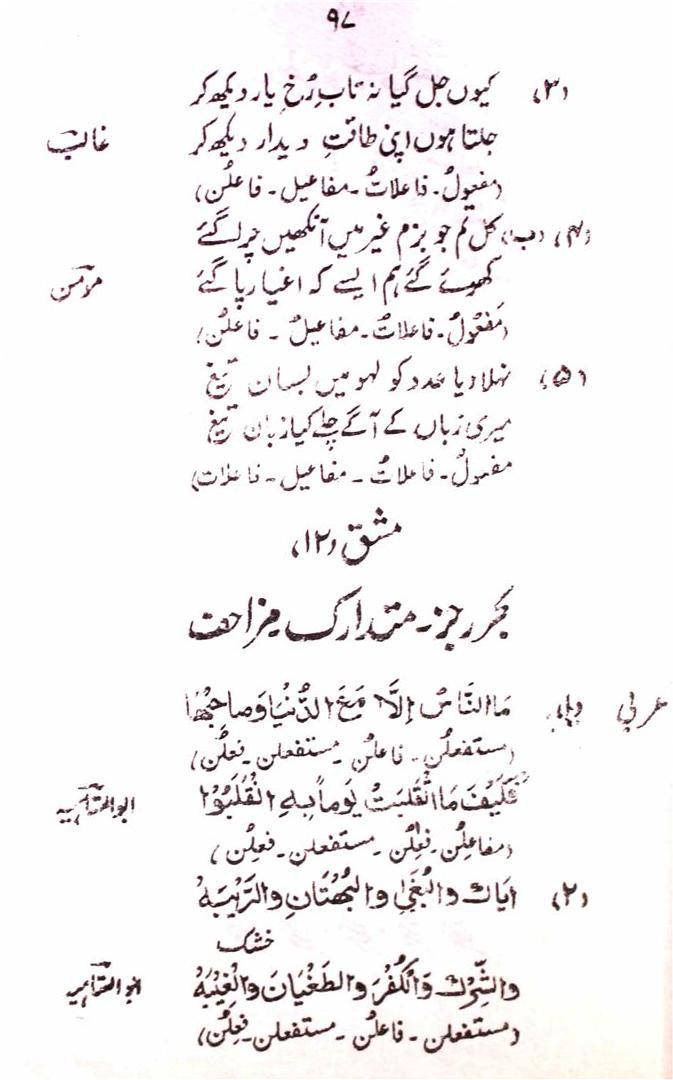 ۹۷
(۳) کیوں جل گیا نہ تابِ رُخِ یار دیکھ کر
جلتا ہوں اپنی طاقتِ دیدار دیکھ کر غالبؔ
(مفعولُ۔ فاعلاتُ۔ مفاعیل۔ فاعلن)
(۴) (ب) کل تم جو بزم غیر میں آنکھیں چرا گئے
کھوئے گئے ہم ایسے کہ اغیار پا گئے مومنؔ
(مَفعُولُ۔ فاعلاتُ۔ مفاعیلُ ۔ فاعلُن)
(۵) نہلا دیا عدد کو لہو میں بسان تیغ
میری زباں کے آگے چلے کیا زبان تیغ
مفعولُ۔ فاعلاتُ ۔ مفاعیل۔ فاعلات)
مشق (۱۲)
بحر رجز۔ متدارک مزاحف
عربی (۱) مَا النَّاسُ اِلَّا مَعَ الدُّنْیَا وَصاحِبُھا
(مستفعلن۔ فاعلن۔ مستفعلن۔ فعِلُن)
فَکَیْفَ مَا انْقَلَبَتْ یَوماً بِہِ انْقَلَبُوْا ابوالعتاہیہ
(مفاعلِن۔ فعِلُن۔ مستفعلن۔ فعِلن)
(۲) ایاک والبُغیَ والبُھْتَانِ والرَّیْبَہْ
خشک
والشِّرْکَ وَالْکُفْرَ والطغْیَانَ والْغِیْبَہْ ابوالعتاہیہ
(مستفعلن۔ فاعلن۔ مستفعلن۔ فعِلُن)